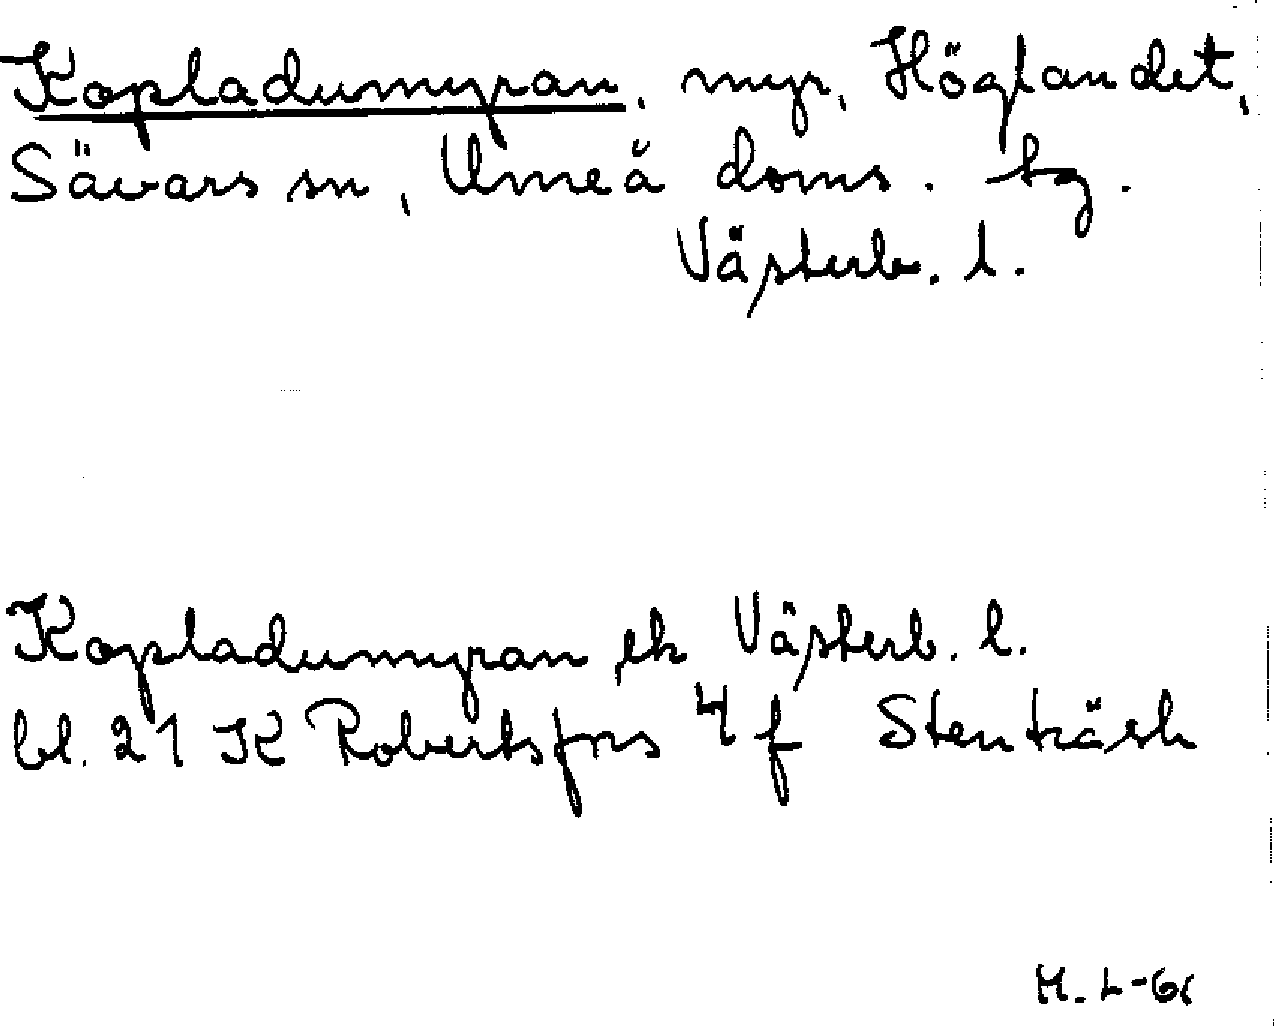 Kopladumyran, myr, Höglandet,
Sävars sn, Umeå doms. tg.
Västerb. l.
Kopladumyran ek Västerb. l.
bl. 21 K Robertsfors 4 f Stenträsk
M. L-61